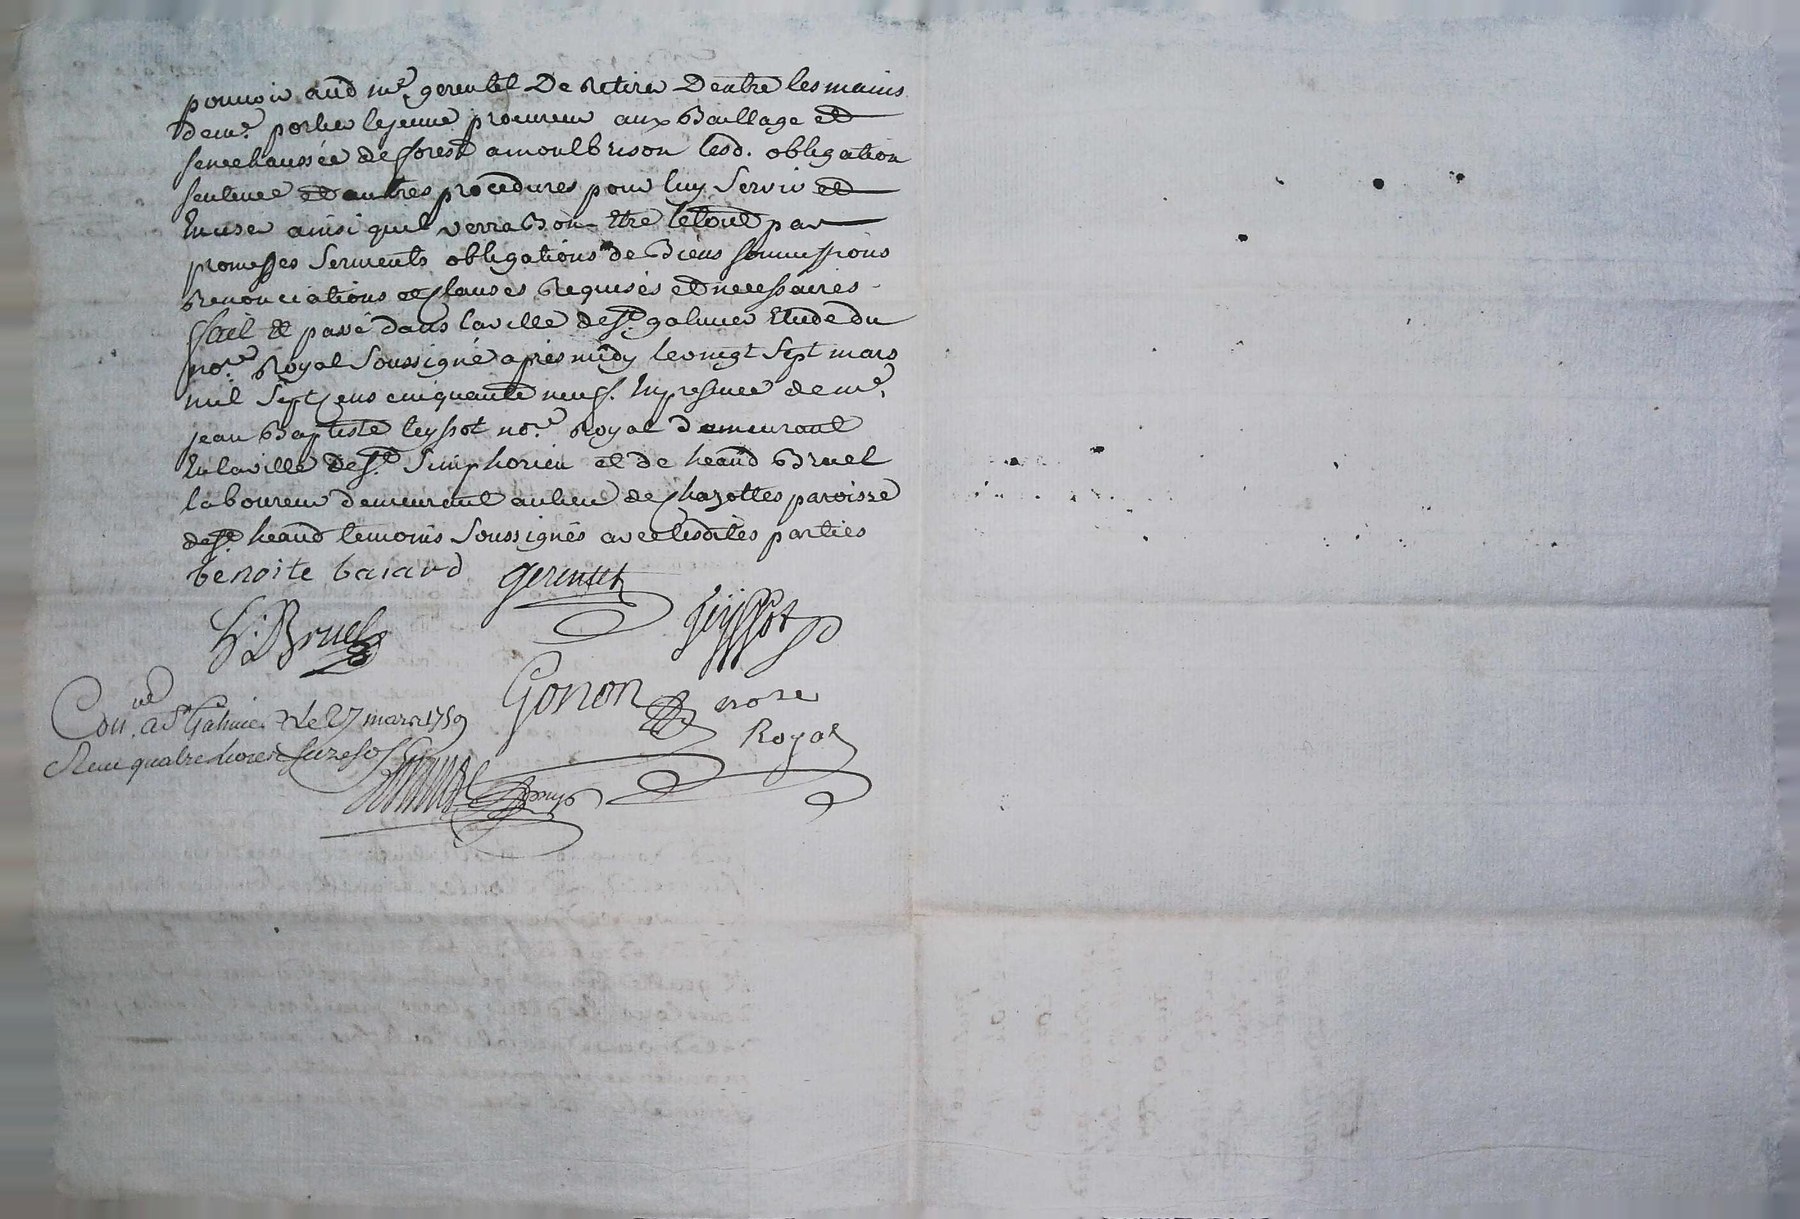 pouvoir aud me. gerentet De Retirer Dentre les mains
de me. portier lejeune procureur aux Baillage et
senechaussée de forest a monlbrison lesd. obligation
sentence et autres procedures pour luy Servir et
En user ainsi quil verra Bon Etre le tout par
promesses Serments obligations de Biens soumissions
Renonciations et Clauses Requises et necessaires
fait et passé dans la ville de St. galmier Etude du
nore. Royal Soussigné après midy le vingt Sept mars
mil Sept Cens cinquante neuf. En presence de me.
jean Baptiste leyssot nore. Royal demeurant
En la ville de St. Simphorien et de heand Bruel
laboureur demeurant au lieu de Chazottes paroisse
de St. heand temoins Soussignés avec lesdites parties
benoite baiard gerentet
h. Bruel leyssot
Gonon nore
Royal
Con.lé a St Galmier Le 27 mars 1759
Receu quatre livres seize sols